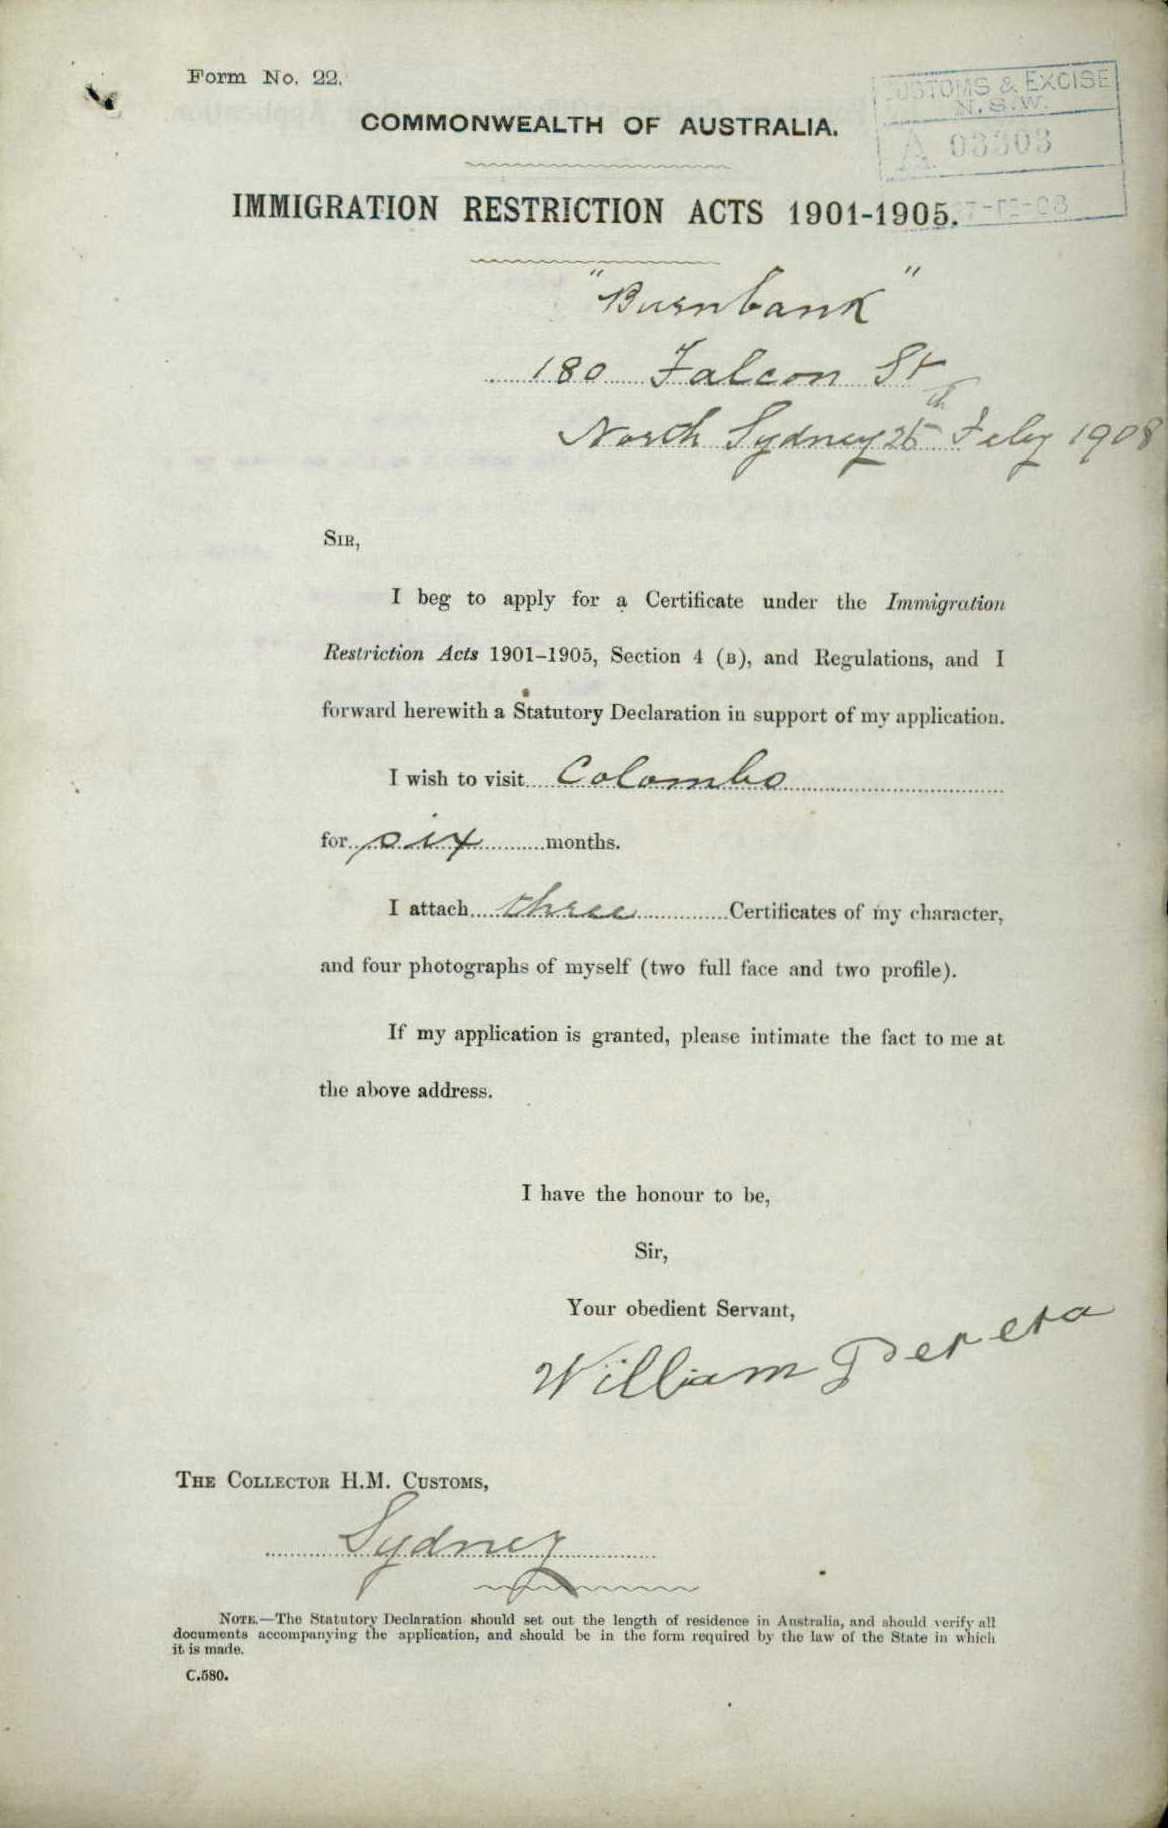 Form No. 22.
CUSTOMS & EXCISE
N.S.W.
A 03303
COMMONWEALTH OF AUSTRALIA.
IMMIGRATION RESTRICTION ACTS 1901-1905.
"Burnbank"
180 Falcon St
North Sydney 25th Feby 1908
SIR,
I beg to apply for a Certificate under the Immigration
Restriction Acts 1901-1905, Section 4 (B), and Regulations, and I
forward herewith a Statutory Declaration in support of my application.
I wish to visit Colombo
for six months.
I attach three Certificates of my character,
and four photographs of myself (two full face and two profile).
If my application is granted, please intimate the fact to me at
the above address.
I have the honour to be,
Sir,
Your obedient Servant,
William Perera
THE COLLECTOR H.M. CUSTOMS,
Sydney
NOTE.—The Statutory Declaration should set out the length of residence in Australia, and should verify all
documents accompanying the application, and should be in the form required by the law of the State in which
it is made.
C.580.